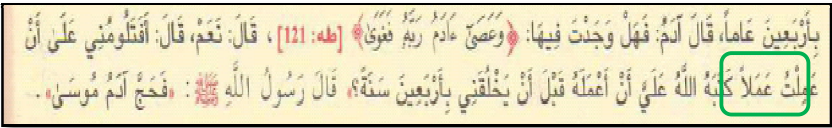 بِأَرْبَعِينَ عَاماً، قَالَ آدَمُ: فَهَلْ وَجَدْتَ فِيهَا: ﴿وَعَصَىٰٓ ءَادَمُ رَبَّهُۥ فَغَوَىٰ﴾ [طه: 121]، قَالَ: نَعَمْ، قَالَ: أَفَتَلُومُنِي عَلَىٰ أَنْ
عَمِلْتُ عَمَلاً كَتَبَهُ اللَّهُ عَلَيَّ أَنْ أَعْمَلَهُ قَبْلَ أَنْ يَخْلُقَنِي بِأَرْبَعِينَ سَنَةً؟» قَالَ رَسُولُ اللَّهِ ﷺ: «فَحَجَّ آدَمُ مُوسَىٰ».